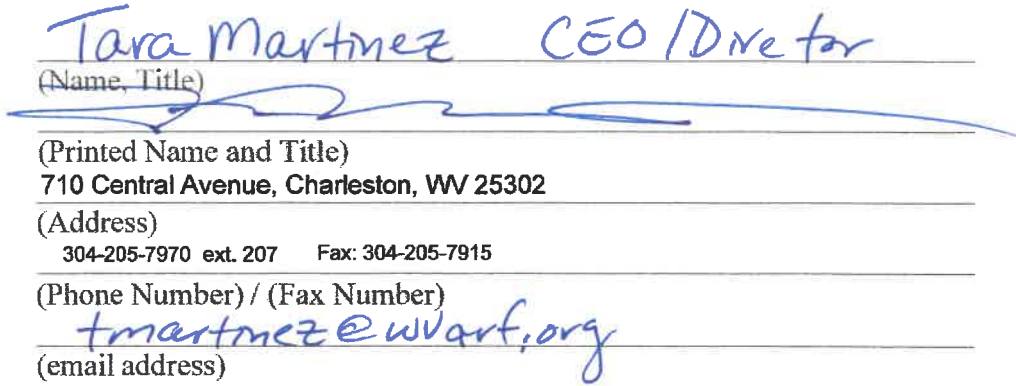 Tara Martinez CEO/Director
(Name, Title)
(Printed Name and Title)
710 Central Avenue, Charleston, WV 25302
(Address)
304-205-7970 ext. 207 Fax: 304-205-7915
(Phone Number) / (Fax Number)
tmartinez@wvarf.org
(email address)